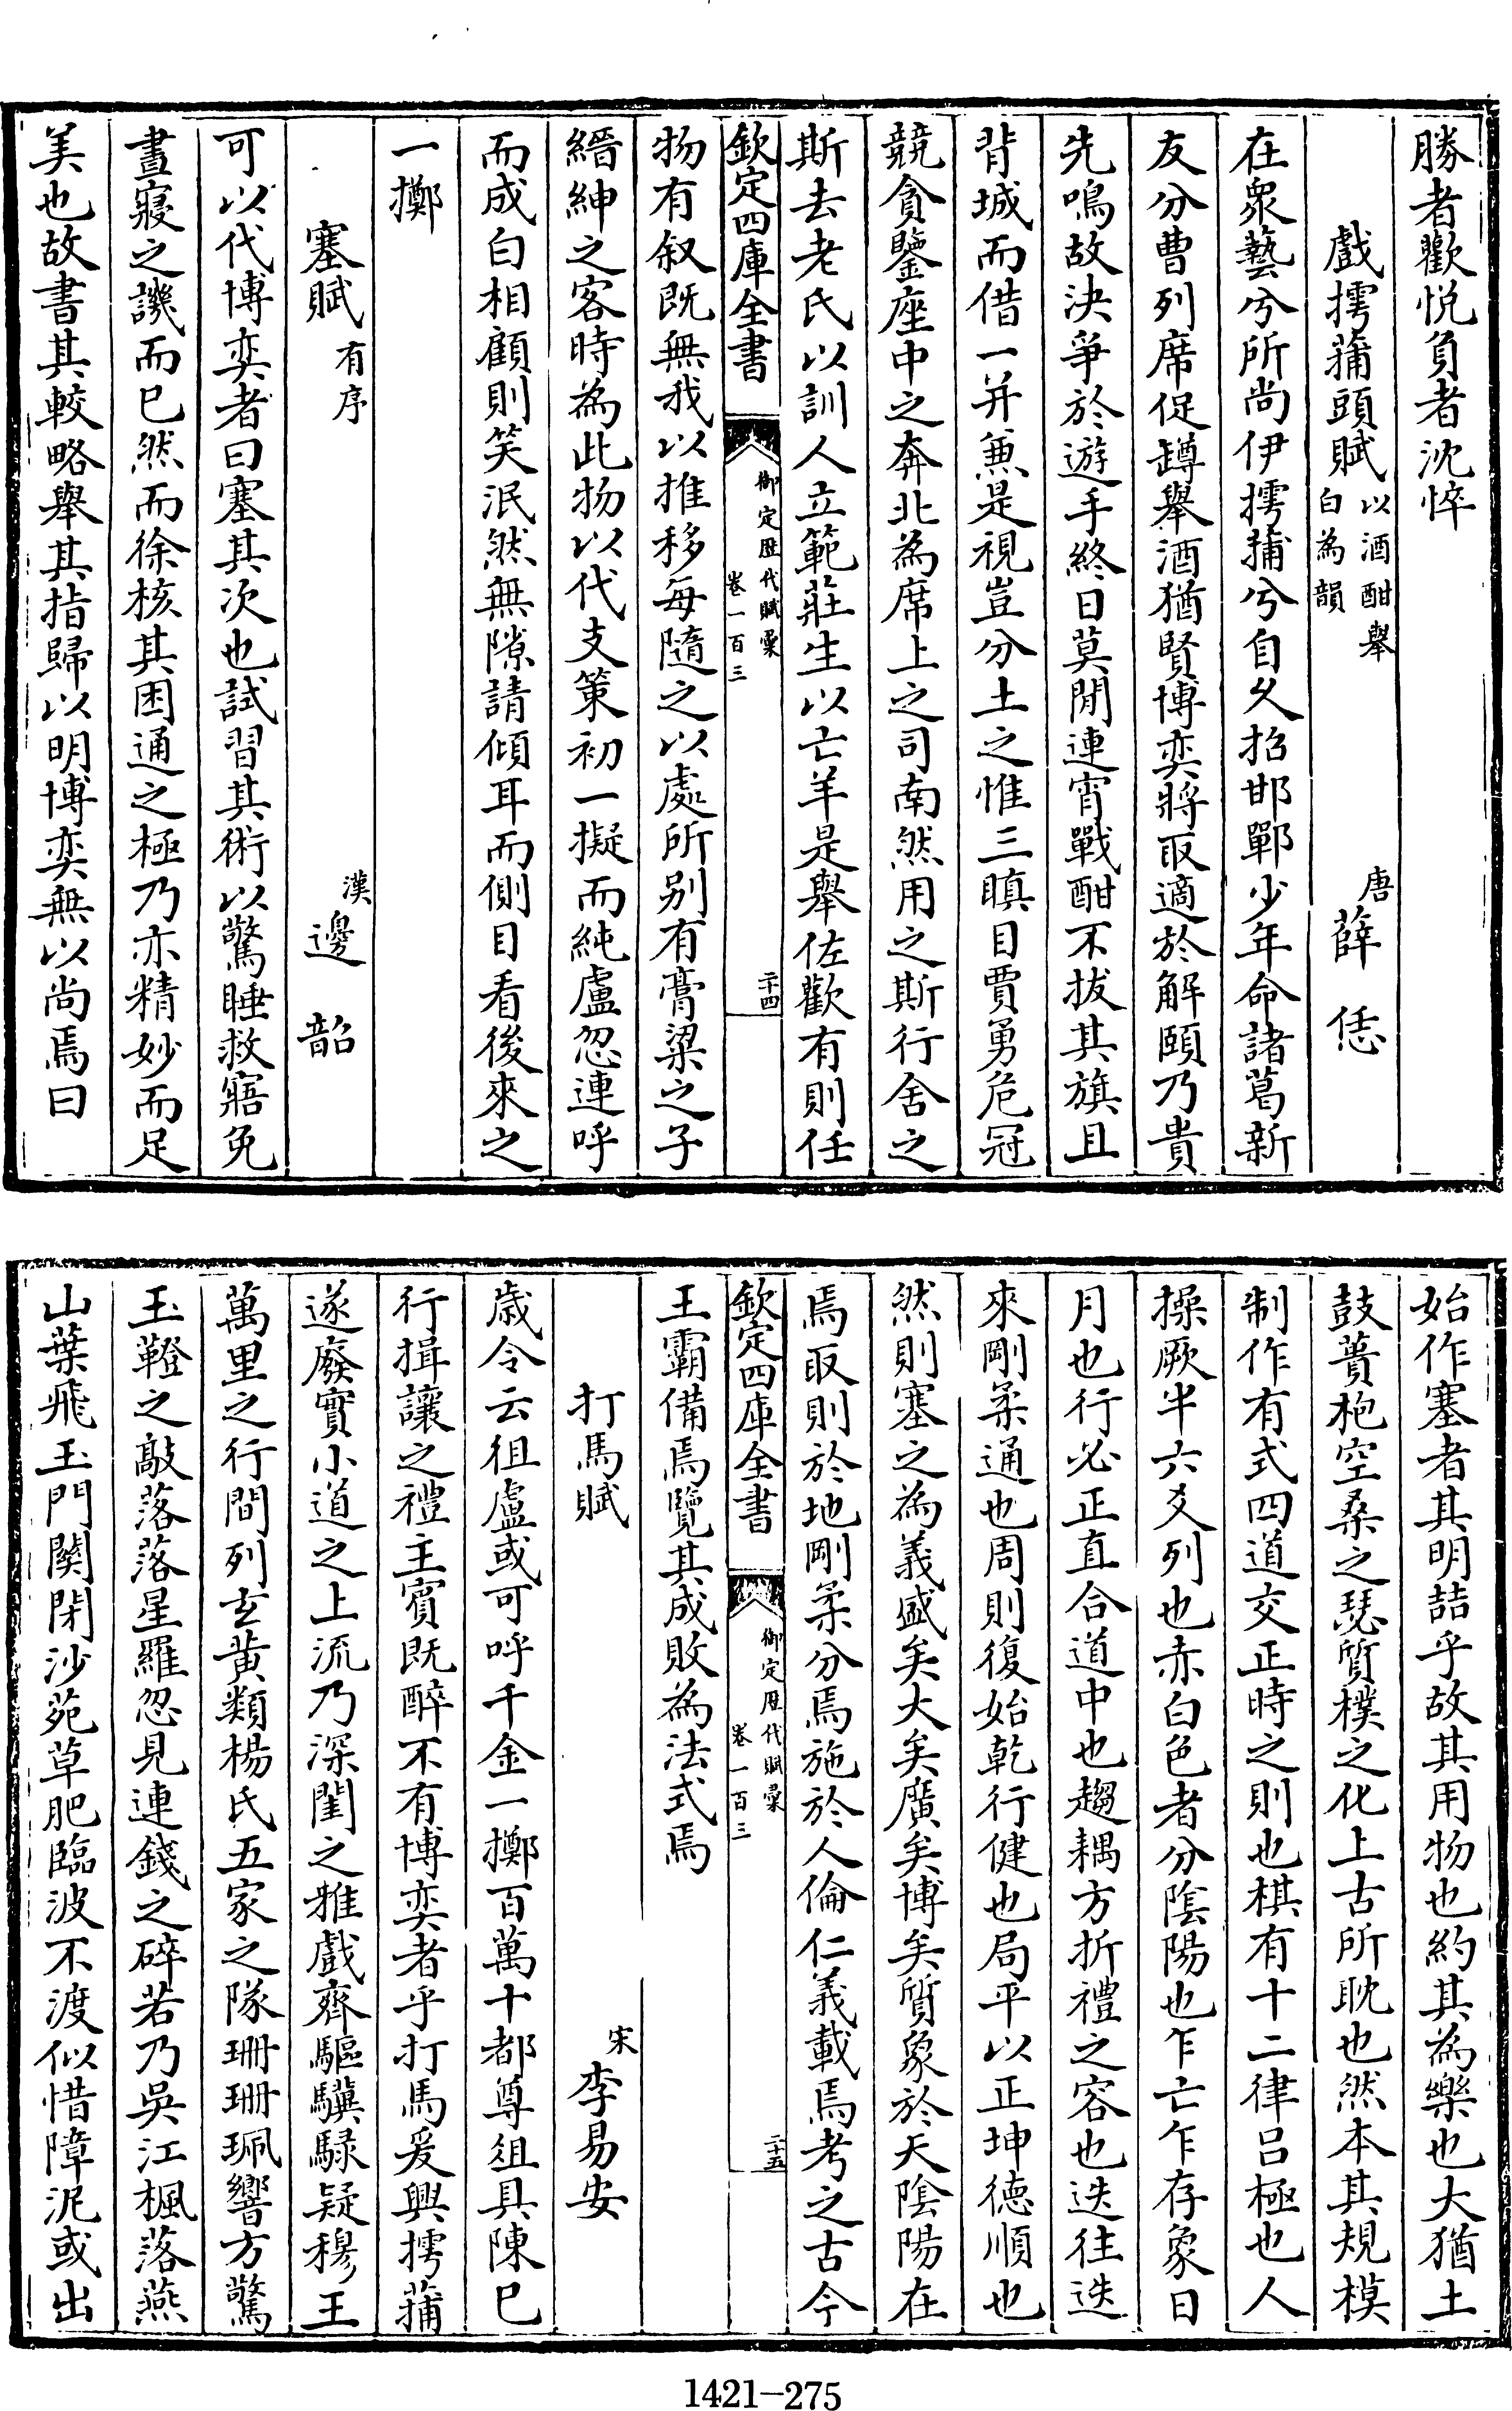 勝者歡悦負者沈悴
戲摴蒱頭賦以酒酣舉白為韻 唐薛恁
在衆藝兮所尚伊摴蒱兮自久招邯鄲少年命諸葛新
友分曹列席促罇舉酒猶賢博奕將取適於解頤乃貴
先鳴故決爭於遊手終日莫閒連宵戰酣不拔其旗且
背城而借一并兼是視豈分土之惟三瞋目賈勇危冠
競貪鑒座中之奔北為席上之司南然用之斯行舍之
斯去老氏以訓人立範莊生以亡羊是舉佐歡有則任
欽定四庫全書 御定歴代賦彚 卷一百三 二十四
物有叙既無我以推移每隨之以處所别有膏粱之子
縉紳之客時為此物以代支策初一擬而純盧忽連呼
而成白相顧則笑泯然無隙請傾耳而側目看後來之
一擲
塞賦有序 漢邊韶
可以代博奕者曰塞其次也試習其術以驚睡救寤免
晝寢之譏而已然而徐核其困通之極乃亦精妙而足
美也故書其較略舉其指歸以明博奕無以尚焉曰
始作塞者其明喆乎故其用物也約其為樂也大猶土
鼓蕢枹空桑之瑟質樸之化上古所耽也然本其規模
制作有式四道交正時之則也棋有十二律吕極也人
操厥半六爻列也赤白色者分陰陽也乍亡乍存象日
月也行必正直合道中也趨耦方折禮之容也迭往迭
來剛柔通也周則復始乾行健也局平以正坤德順也
然則塞之為義盛矣大矣廣矣博矣質象於天陰陽在
焉取則於地剛柔分焉施於人倫仁義載焉考之古今
欽定四庫全書 御定歴代賦彚 卷一百三 二十五
王霸備焉覽其成敗為法式焉
打馬賦 宋李易安
歲令云徂盧或可呼千金一擲百萬十都尊俎具陳已
行揖讓之禮主賓既醉不有博奕者乎打馬爰興摴蒱
遂廢實小道之上流乃深閨之雅戲齊驅驥騄疑穆王
萬里之行間列玄黄類楊氏五家之隊珊珊珮響方驚
玉鞚之敲落落星羅忽見連錢之碎若乃吳江楓落燕
山葉飛玉門關閉沙苑草肥臨波不渡似惜障泥或出
1421—275